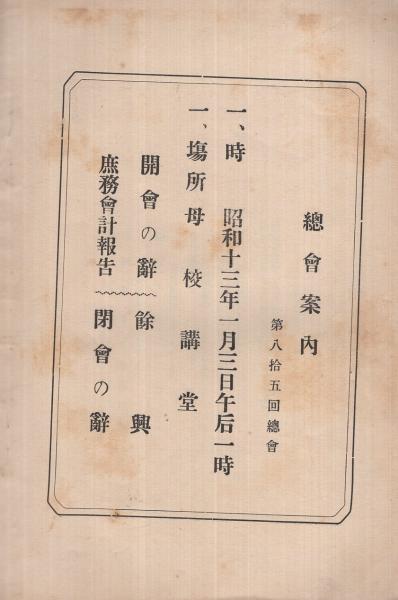 總會案內
第八拾五回總會
一、時　昭和十三年一月三日午后一時
一、塲所母校講堂
開會の辭　餘興
庶務會計報告　閉會の辭